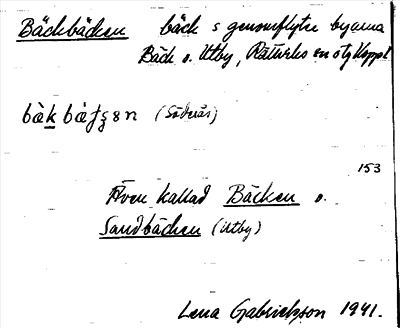 Bäckbäcken bäck s genomflyter byarna
Bäck o. Utby, Rättarbo en o tg Koppl
bàk bàʈʂɛn (Söderås)
153
Även kallad Bäcken o.
Sandbäcken (Utby)
Lena Gabrielsson 1941.